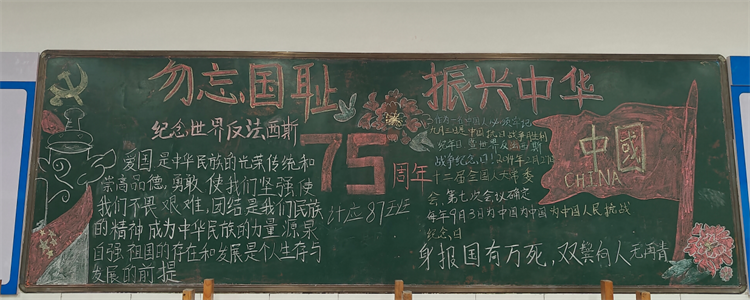 勿忘国耻 振兴中华
纪念世界反法西斯
75
周年
爱国是中华民族的光荣传统和
崇高品德,勇敢使我们坚强使
我们不畏艰难,团结是我们民族
的精神成为中华民族的力量源泉
自强祖国的存在和发展是个人生存与
发展的前提
计应87班
九月三日是中国抗日战争胜利
纪年日暨世界反西斯
战争纪念日!2014年2月27日
十二届全国人大常委
会,第七次会议确定
每年9月3日为中国为中国为中国人民抗战
纪念日
身报国有万死,双鬓向人无再青
中國
CHINA